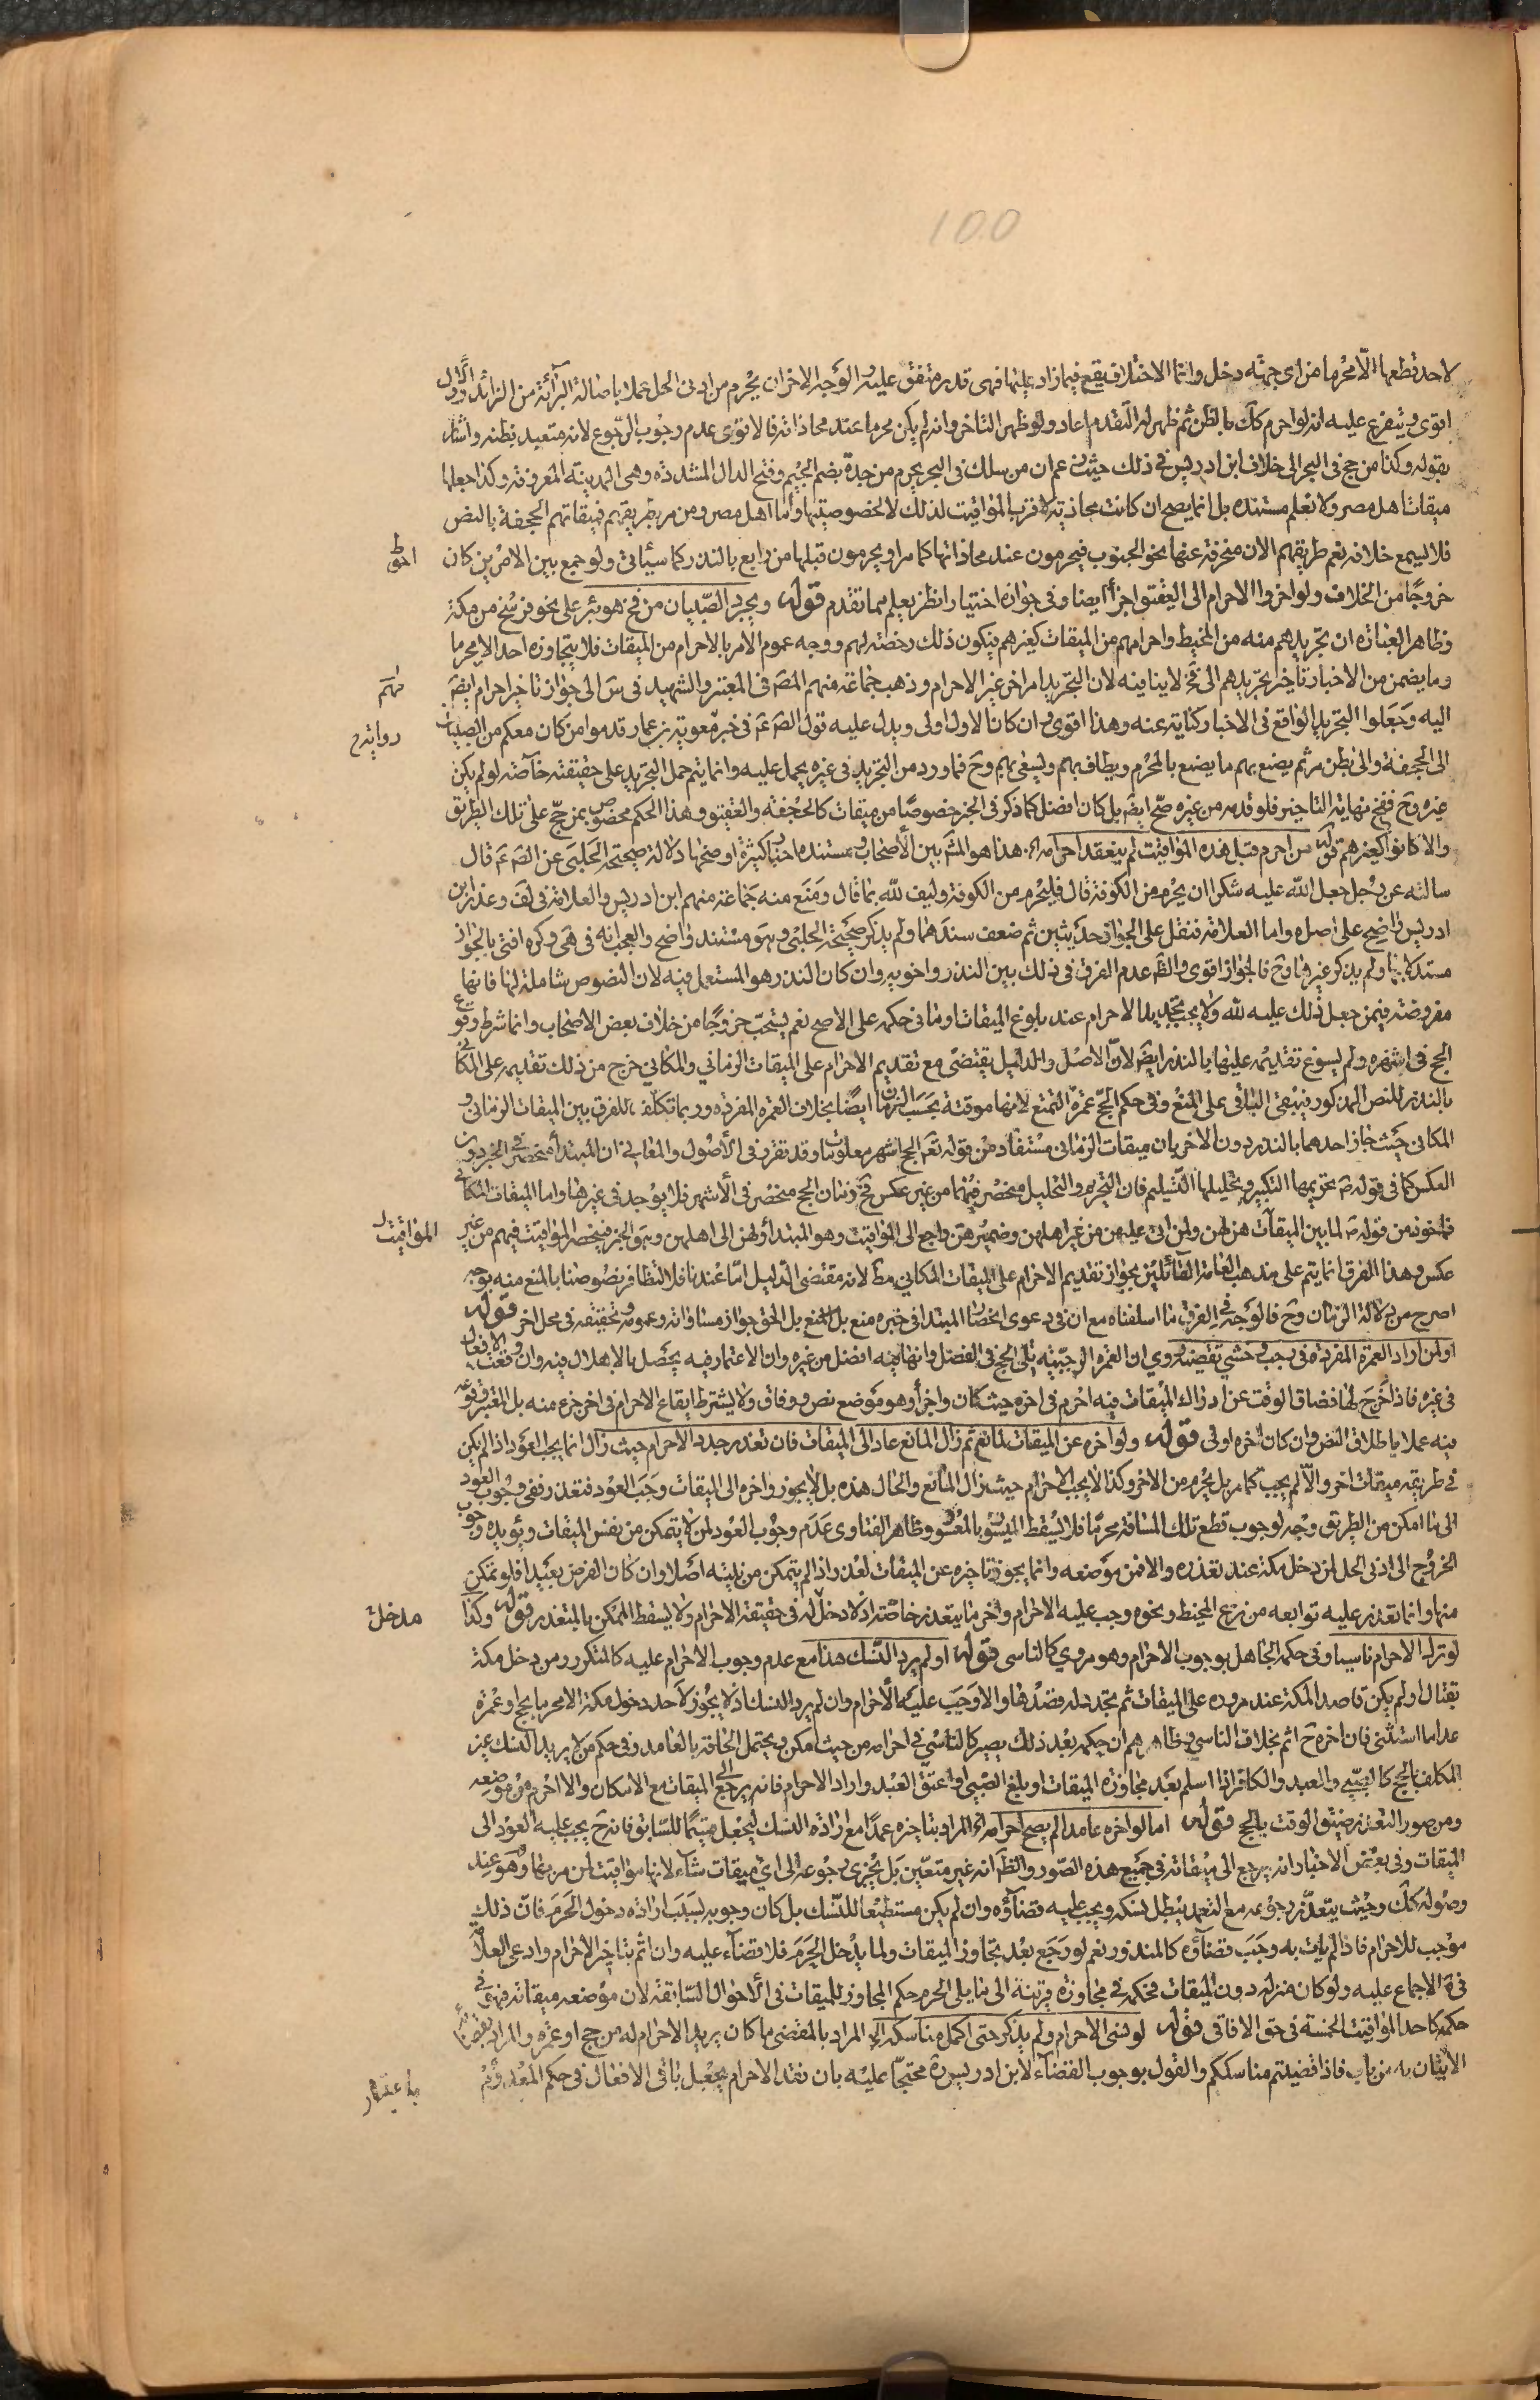 100
لاحد قطعها الا محرما من اى جهة دخل وانما الاختلاف يقع فيما زاد عليها فهى قدر متفق عليه والوجه الاخر ان يحرم من ادنى الحل عملا باصالة البرائة من الزائد والاول
اقوى ويتفرع عليه انه لو احرم كك بالظن ثم ظهر له التقدم اعاد ولو ظهر التاخر وانه لم يكن محرما عند محاذاته فالاقوى عدم وجوب الرجوع لانه متعبد بظنه واشار
بقوله وكذا من حج فى البحر الى خلاف ابن ادريس فى ذلك حيث زعم ان من سلك فى البحر يحرم من جدة بضم الجيم وفتح الدال المشددة وهى المدينة المعروفة وكذا جعلها
ميقات اهل مصر ولا نعلم مستنده بل انما يصح ان كانت محاذية لاقرب المواقيت لذلك لا لخصوصيتها واما اهل مصر ومن مر بطريقهم فميقاتهم الجحفة بالنص
فلا يسمع خلافه نعم طريقهم الان منحرفة عنها نحو الجنوب فيحرمون عند محاذاتها كما مر او يحرمون قبلها من رابغ بالنذر كما سيأتى ولو جمع بين الامرين كان
احوط
خروجا من الخلاف ولو اخروا الاحرام الى العقيق اجزأ ايضا وفى جوازه اختيارا نظر يعلم مما تقدم قوله ويجرد الصبيان من فخ هو بئر على نحو فرسخ من مكة
وظاهر العبارة ان تجريدهم منه من المخيط واحرامهم من الميقات كغيرهم فيكون ذلك رخصة لهم ووجه عموم الامر بالاحرام من الميقات فلا يتجاوزه احد الا محرما
وما يضمن من الاخبار تاخير تجريدهم الى فخ لا ينافيه لان التجريد امر اخر غير الاحرام وذهب جماعة منهم المص فى المعتبر والشهيد فى س الى جواز تاخير احرامهم ايض
اليه وجعلوا التجريد الواقع فى الاخبار كناية عنه وهذا اقوى وان كان الاول اولى ويدل عليه قول الص ع فى خبر معوية بن عمار قدموا من كان معكم من الصبيان
رواية
الى الجحفة والى بطن مر ثم يصنع بهم ما يصنع بالمحرم ويطاف بهم ويسعى بهم وح فما ورد من التجريد فى غيره يحمل عليه وانما يتم حمل التجريد على حقيقته خاصة لو لم يكن
غيره وح ففخ نهاية التاخير فلو قدمه من غيره صح ايض بل كان افضل كما ذكر فى الخبر خصوصا من ميقات كالجحفة والعقيق وهذا الحكم مخصوص بمن حج على تلك الطريق
والا كانوا كغيرهم قوله من احرم قبل هذه المواقيت لم ينعقد احرامه اه هذا هو المشهر بين الاصحاب ومستنده اخبار كثيرة اوضحها دلالة صحيحة الحلبى عن الص ع قال
سالته عن رجل جعل الله عليه شكرا ان يحرم من الكوفة قال فليحرم من الكوفة وليف لله بما قال ومنع منه جماعة منهم ابن ادريس والعلامة فى لف وعذر ابن
ادريس واضح على اصله واما العلامة فنقل على الجواز حديثين ثم ضعف سندهما ولم يذكر صحيحة الحلبى وهو مستند واضح والعجب انه فى هى وكره افتى بالجواز
مستدلا بها ولم يذكر غيرها وح فالجواز اقوى والظ عدم الفرق فى ذلك بين النذر واخويه وان كان النذر هو المستعمل فيه لان النصوص شاملة لها فانها
مفروضة فيمن جعل ذلك عليه لله ولا يجب تجديد الاحرام عند بلوغ الميقات او ما فى حكمه على الاصح نعم يستحب خروجا من خلاف بعض الاصحاب وانما شرط وقوع
الحج فى اشهره ولم يسوغ تقديمه عليها بالنذر ايض لان الاصل والدليل يقتضى منع تقديم الاحرام على الميقات الزمانى والمكانى خرج من ذلك تقديمه على المكانى
بالنذر للنص المذكور فيبقى الباقى على المنع وفى حكم الحج عمرة التمتع لانها موقتة بحسب الزمان ايضا بخلاف العمرة المفردة وربما تكلف للفرق بين الميقات الزمانى و
المكانى حيث جاز احدهما بالنذر دون الاخر بان ميقات الزمانى مستفاد من قوله تع الحج اشهر معلومات وقد تقرر فى الاصول والمعانى ان المبتدأ منحصر فى الخبر دون
العكس كما فى قوله ص تحريمها التكبير وتحليلها التسليم فان التحريم والتحليل منحصر فيهما من غير عكس فح زمان الحج منحصر فى الاشهر فلا يوجد فى غيرها واما الميقات المكانى
فماخوذ من قوله ص لما بين الميقات هن لهن ولمن اتى عليهن من غير اهلهن وضمير هن راجع الى المواقيت وهو المبتدأ ولهن الى اهلهن وهو الخبر فينحصر المواقيت فيهم من غير
المواقيت
عكس وهذا الفرق انما يتم على مذهب العامة القائلين بجواز تقديم الاحرام على الميقات المكانى مط لانه مقتضى الدليل اما عندنا فلا لتظافر نصوصنا بالمنع منه بوجه
اصرح من دلالة الزمان وح فالوجه فى الفرق ما اسلفناه مع ان فى دعوى انحصار المبتدا فى خبره منع بل الحق جواز مساواته وعمومه وتحقيقه فى محل اخر قوله
او لمن اراد العمرة المفردة فى رجب وخشى تقضيه روى ان العمرة الرجبية تلى الحج فى الفضل وانها فيه افضل من غيره وان الاعتمار فيه يحصل بالاهلال فيه وان وقعت الافعال
فى غيره فاذا خرج لها فضاق الوقت عن ادراك الميقات فيه احرم فى اخره حيث كان واجزأ وهو موضع نص ووفاق ولا يشترط ايقاع الاحرام فى اخر جزء منه بل المعتبر وقوعه
فيه عملا باطلاق النص وان كان اخره اولى قوله ولو اخره عن الميقات لمانع ثم زال المانع عاد الى الميقات فان تعذر جدد الاحرام حيث زال انما يجب العود اذا لم يكن
فى طريقه ميقات اخر والا لم يجب كما مر بل يحرم من الاخر وكذا لا يجب الاحرام حيث زال المانع والحال هذه بل لا يجوز واخره الى الميقات وجب العود فتعذر ففى وجوب العود
الى ما امكن من الطريق وجه لوجوب قطع تلك المسافة محرما فلا يسقط الميسور بالمعسور وظاهر الفتاوى عدم وجوب العود لمن لا يتمكن من نفس الميقات ويؤيده وجوب
الخروج الى ادنى الحل لمن دخل مكة عند تعذره والا فمن موضعه وانما يجوز تاخيره عن الميقات لعذر اذا لم يتمكن من نيته اصلا وان كان الفرض بعيدا فلو تمكن
منها وانما تعذر عليه توابعه من نزع المخيط ونحوه وجب عليه الاحرام واخر ما يتعذر خاصة اذ لا دخل له فى حقيقة الاحرام ولا يسقط الممكن بالمتعذر قوله وكذا
مدخل
لو ترك الاحرام ناسيا وفى حكمه الجاهل بوجوب الاحرام وهو مروى كالناسى قوله او لم يرد النسك هذا مع عدم وجوب الاحرام عليه كالمتكرر ومن دخل مكة
بقتال او لم يكن قاصدا لمكة عند مروره على الميقات ثم تجدد له قصدها والا وجب عليه الاحرام وان لم يرد النسك اذ لا يجوز لاحد دخول مكة الا محرما بحج او عمرة
عدا ما استثنى فان اخره ح اثم بخلاف الناسى وظاهرهم ان حكمه بعد ذلك يصير كالناسى فى احرامه من حيث امكن ويحتمل الحاقه بالعامد وفى حكم من لا يريد النسك غير
المكلف بالحج كالصبى والعبد والكافر اذا اسلم بعد مجاوزة الميقات او بلغ الصبى او اعتق العبد واراد الاحرام فانه يرجع الى الميقات مع الامكان والا احرم من موضعه
ومن صور التعذر ضيق الوقت بالحج قوله اما لو اخره عامدا لم يصح احرامه اه المراد بتاخيره عمدا مع ارادة النسك ليجعل قسيما للسابق فانه ح يجب عليه العود الى
الميقات وفى بعض الاخبار انه يرجع الى ميقاته فى جميع هذه الصور والظ انه غير متعين بل يجزى رجوعه الى اى ميقات شاء لانها مواقيت لمن مر بها وهو عند
وصوله كك وحيث يتعذر رجوعه مع التعمد يبطل نسكه ويجب عليه قضاؤه وان لم يكن مستطيعا للنسك بل كان وجوبه بسبب ارادة دخول الحرم فان ذلك
موجب للاحرام فاذا لم يات به وجب قضاؤه كالمنذور نعم لو رجع بعد تجاوز الميقات ولما يدخل الحرم فلا قضاء عليه وان اثم بتاخير الاحرام وادعى العلامة
فى كره الاجماع عليه ولو كان منزله دون الميقات فحكمه فى مجاوزة قريته الى ما يلى الحرم حكم المجاوز للميقات فى الاحوال السابقة لان موضعه ميقاته فهو فى
حكمه كاحد المواقيت الخمسة فى حق الافاقى قوله لو نسى الاحرام ولم يذكر حتى اكمل مناسكه اه المراد بالمقضى ما كان يريد الاحرام له من حج او عمرة والمراد بقضائه
الاتيان به من باب فاذا قضيتم مناسككم والقول بوجوب القضاء لابن ادريس ره محتجا عليه بان فقد الاحرام يجعل باقى الافعال فى حكم المعدوم